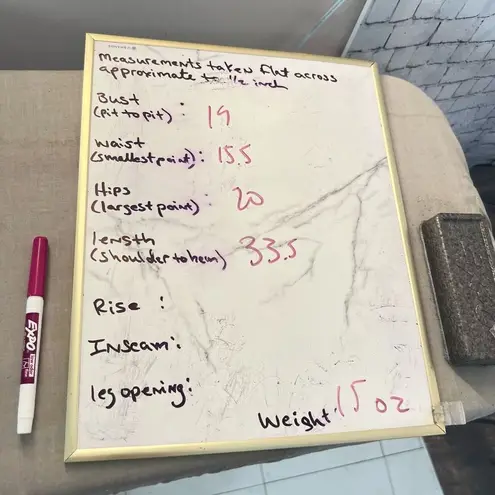 Measurements taken flat across
approximate to 1/2 inch
Bust
(pit to pit) : 19
Waist
(smallest point) : 15.5
Hips
(largest point) : 20
length
(shoulder to hem) 33.5
Rise :
Inseam :
leg opening :
Weight 15 oz
EXPO